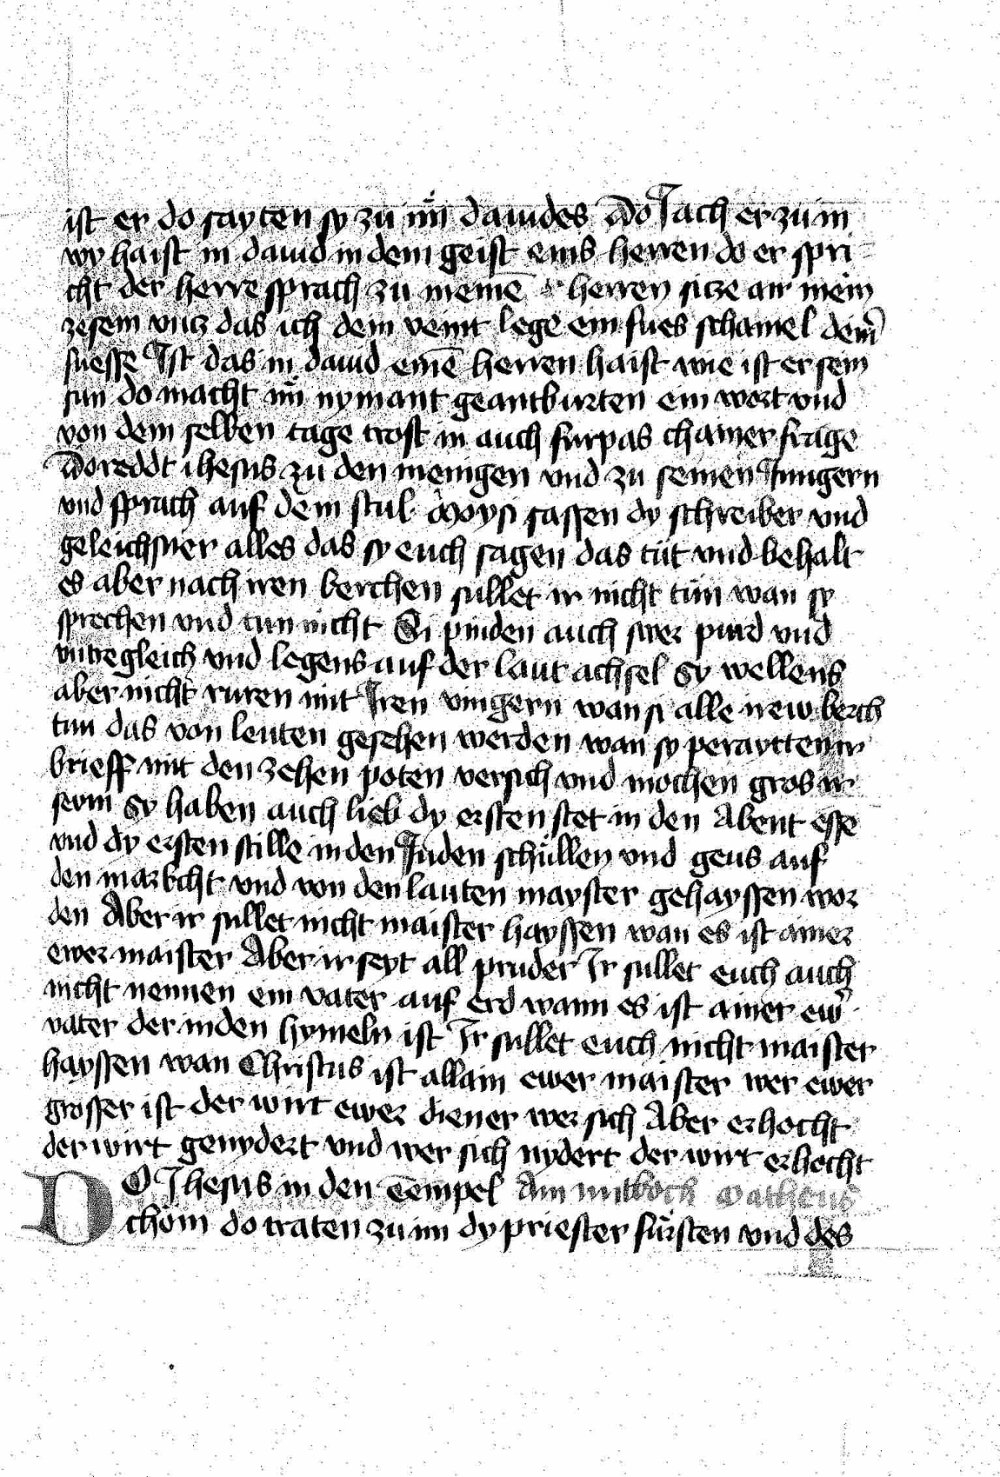 ist er do sayten sy zu im dauides Do Jach er zu in
wy haist in dauid in dem geist eins herren do er spri
cht der herre sprach zu meinē herren sicze an mein
zesem vncz das ich dein veint lege ein fues schamel dein̄
fuesse Ist das in dauid einē herren haist wie ist er sein
sun do macht im nymant geantburten ein wort vnd
von dem selben tage trost in auch furpas chainer frage
Do reddt ihesus zu den menigen vnd zu seinen Jungern
vnd sprach auf dem stul Moysi sassen dy schreiber vnd
geleichsner alles das sy euch sagen das tut vnd behalt
es aber nach iren berchen sullet ir nicht tun wan sy
sprechen vnd tun nicht Si pinden auch swer purd vnd
vntregleich vnd legens auf der laut achsel Sy wellens
aber nicht ruren mit Iren vingern wan si alle irew berch
tun das von leuten gesehen werden wan sy peraytten ir
brieff mit den zehen poten versich vnd mochen gros ir
seom Sy haben auch lieb dy ersten stet in den Abent esse
vnd dy ersten stille in den Juden schullen vnd grus auf
den marbcht vnd von den lauten mayster gehayssen wor
den Aber ir sullet nicht maister hayssen wan es ist ainer
ewer maister Aber ir seyt all pruder Ir sullet euch auch
nicht nennen ein vater auf Erd wann es ist ainer ew̄
vater der in den hymeln ist Ir sullet euch nicht maister
hayssen wan Christus ist allain ewer maister wer ewer
grosser ist der wirt ewer diener wer sich Aber erhocht
der wirt genydert vnd wer sich nydert der wirt erhocht
DO Jhesus in den Tempel Am mitboch Matheus
chom do traten zu im dy priester fursten vnd des